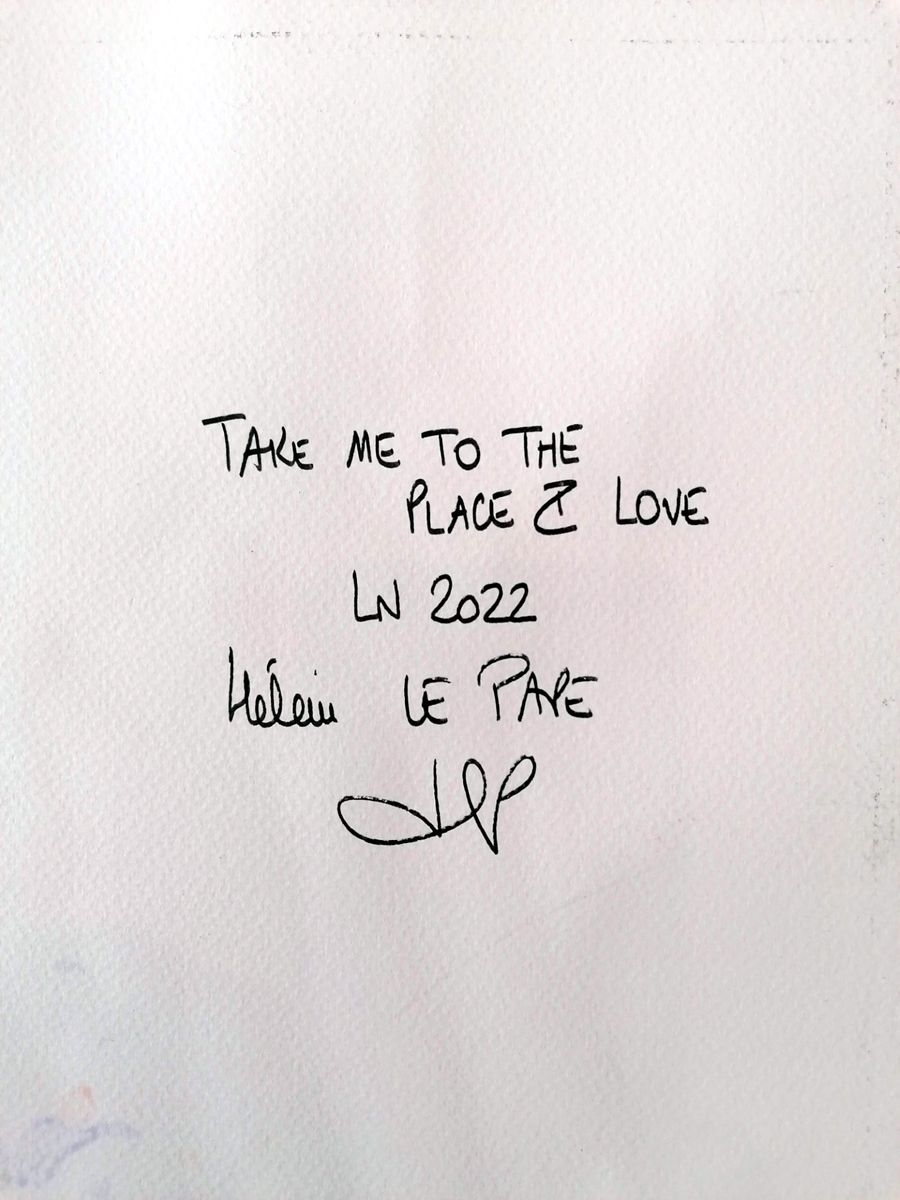 TAKE ME TO THE
PLACE I LOVE
LN 2022
LE PAPE